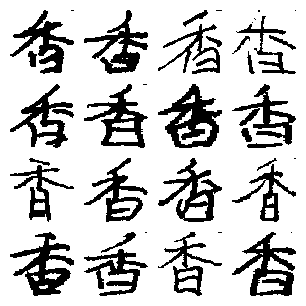 香香香香
香香香香
香香香香
香香香香